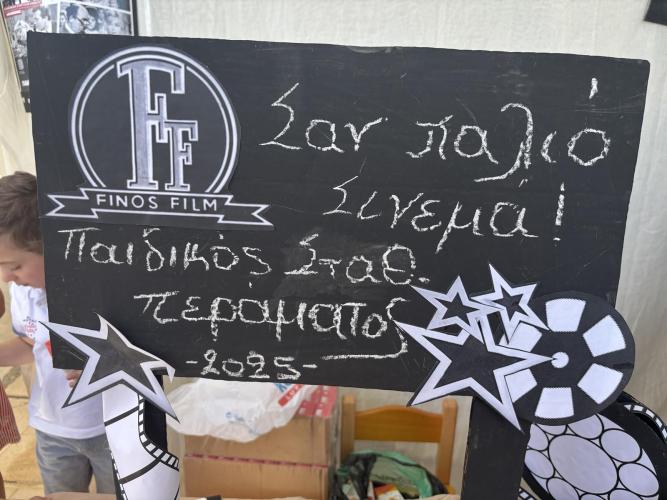 FF
FINOS FILM
Σαν παλιό
Σινεμά!
Παιδικός Σταθ.
Περάματος
-2025-